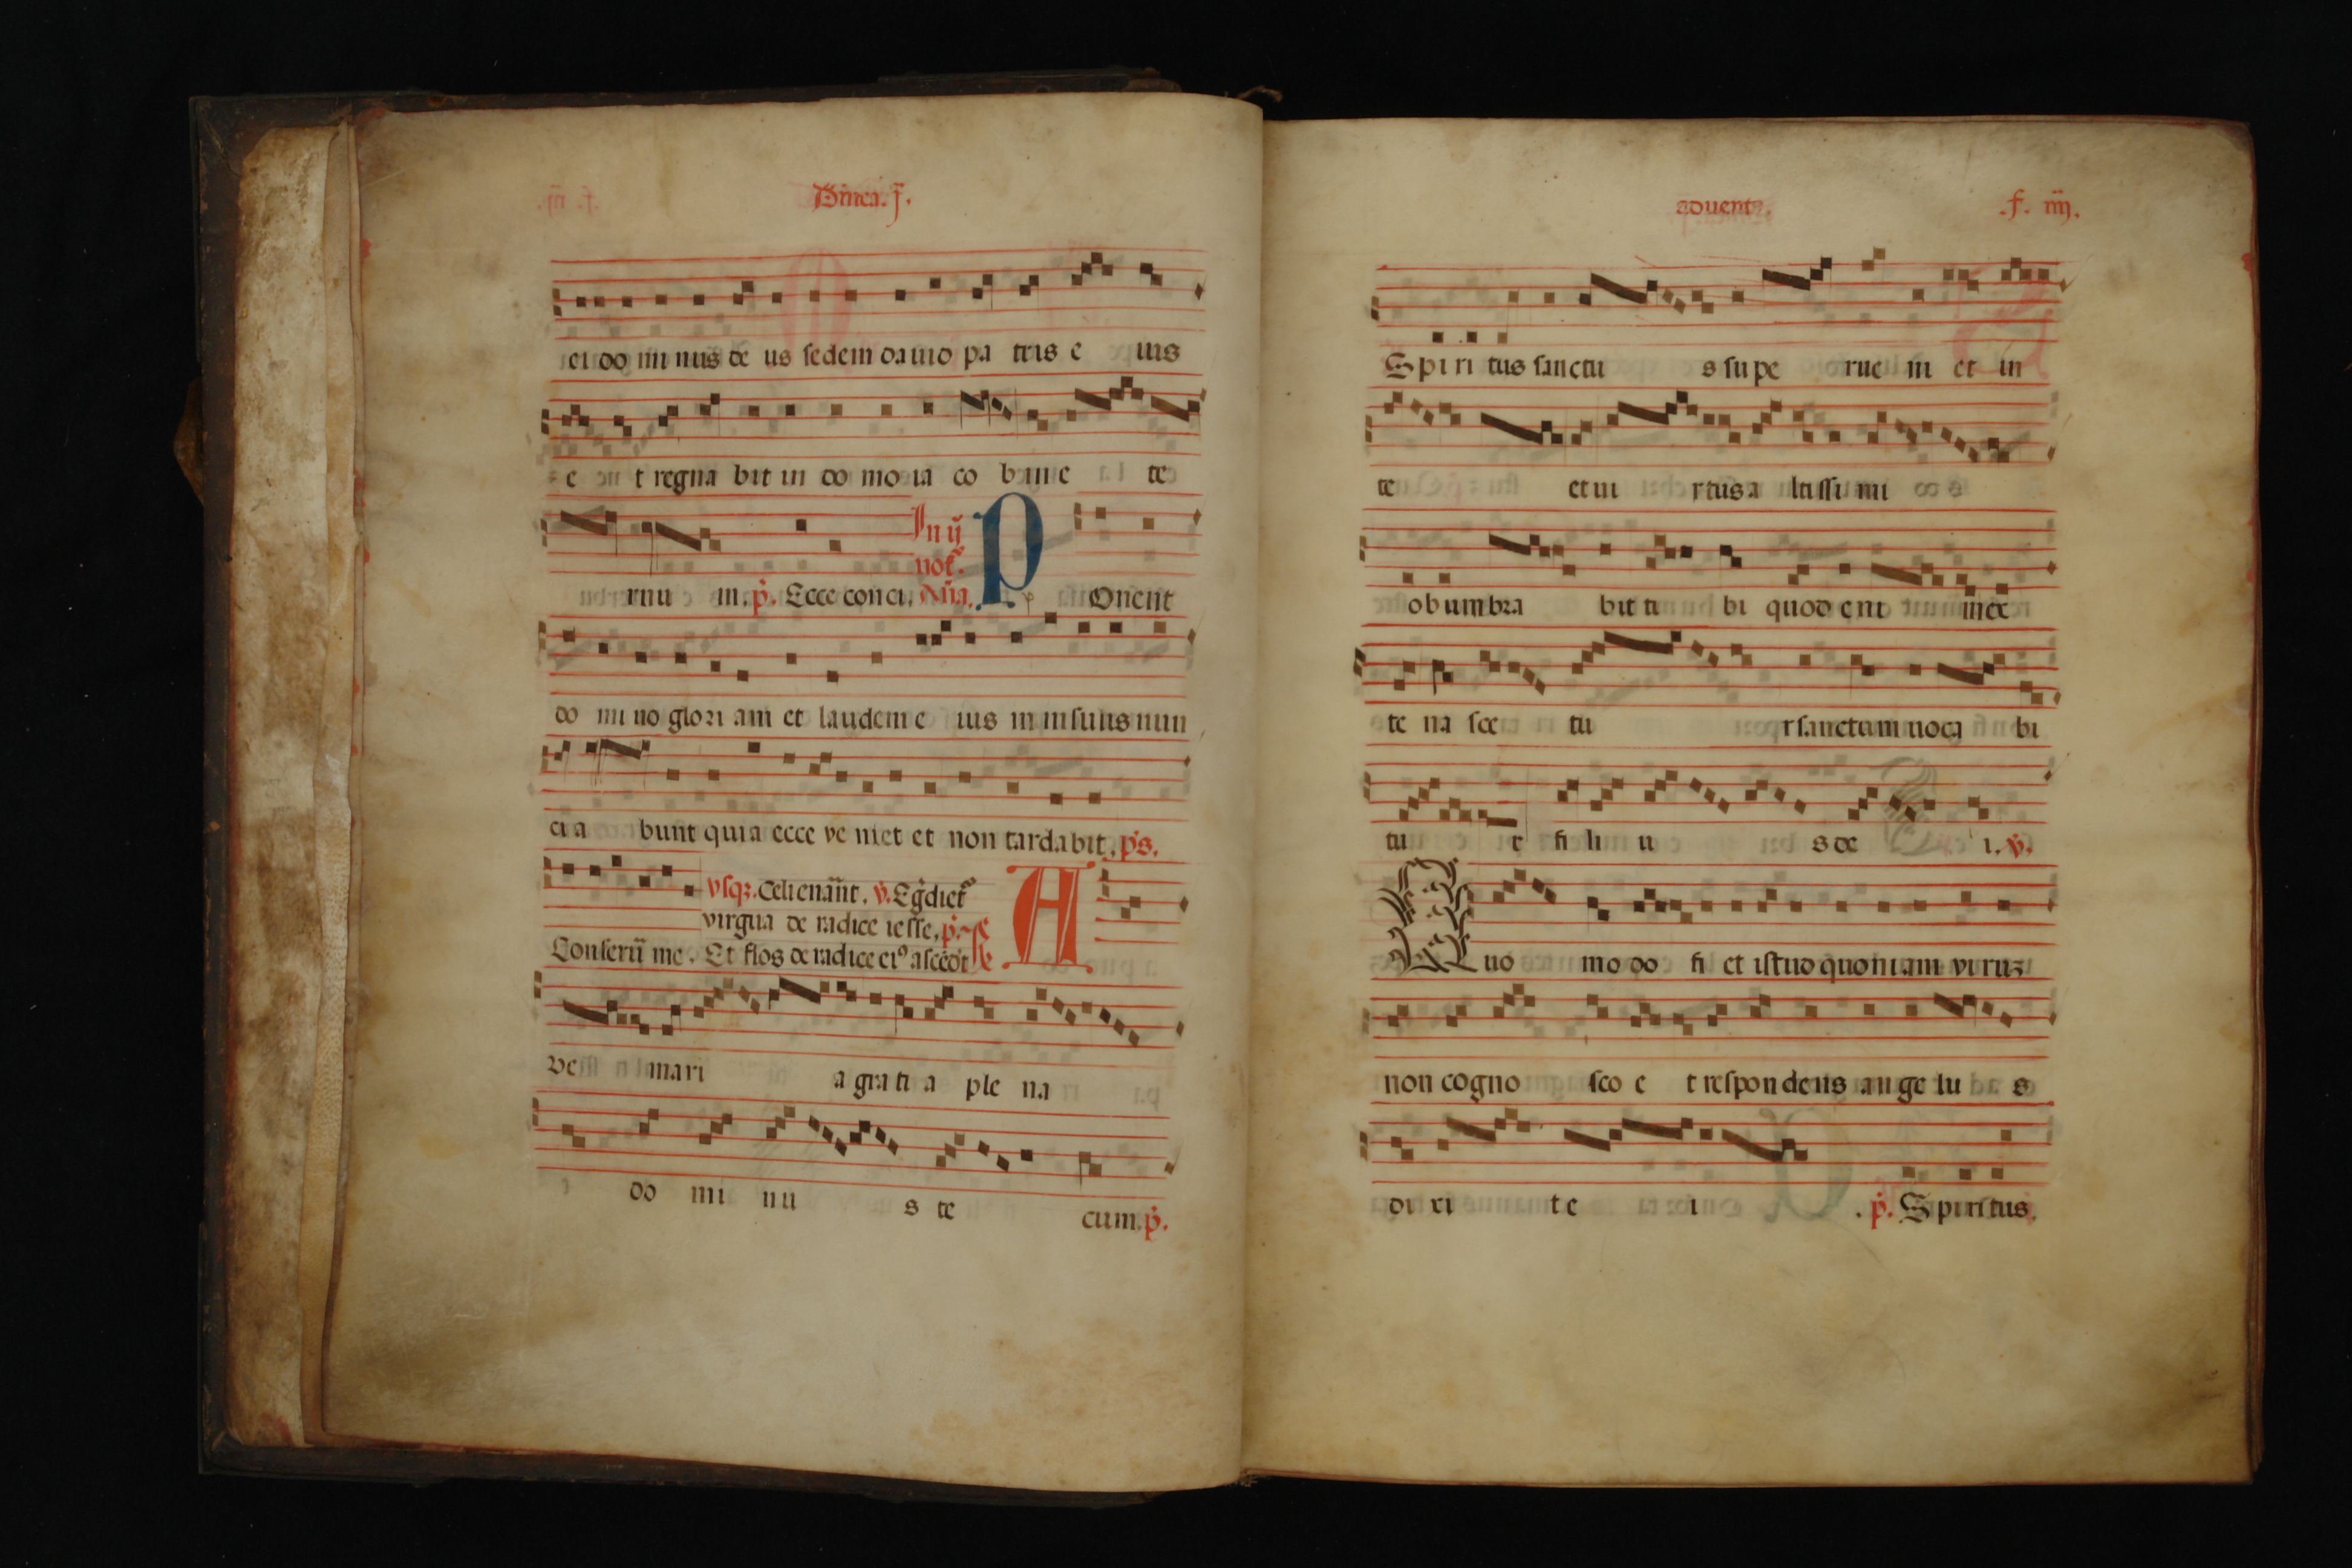 Dn̄ica. j̄.
ei do mi nus de us sedem dauid pa tris e ius
e t regna bit in do mo ia co b in e te
rnu m. p̄. Ecce conci. In ij
noct̄.
Añ. P Onent
do mi no glori am et laudem e ius in insulis nun
ci a bunt quia ecce ve niet et non tardabit. p̄s.
vsq3. Celi enarr̄nt. v̄. Egr̄diet᷑
virgua de radice iesse. p̄.
Conseru᷑ me. Et flos de radice ei⁹ ascēdt
A
Ve mari a gra ti a ple na
do mi nu s te cum. p̄.
aduent9. .f. iiij.
Spi ri tus sanctu s su pe rue ni et in
te et ui rtus a ltissi mi
obumbra bit ti bi quod eni m ex
te na sce tu r sanctum uoca bi
tu r fi li u s de i. v̄.
Quo mo do fi et istud quoniam viru3
non cogno sco e t respon dens an ge lu s
di xi t e i . p̄. Spiritus.